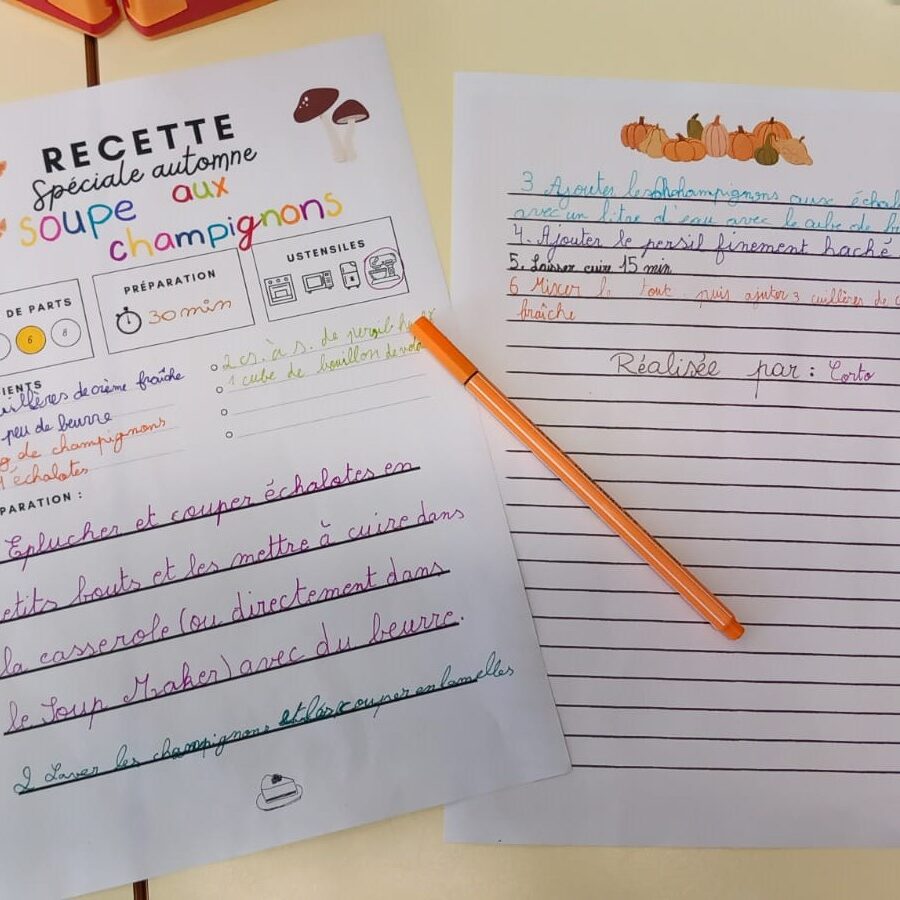 RECETTE
Spéciale automne
soupe aux
champignons
DE PARTS
6
8
PRÉPARATION
30 min
USTENSILES
IENTS
uillères de crème fraîche
peu de beurre
g de champignons
échalotes
2 cs. à s. de persil
1 cube de bouillon de vola
PARATION :
Eplucher et couper échalotes en
etits bouts et les mettre à cuire dans
la casserole (ou directement dans
le Soup Maker) avec du beurre.
2 Laver les champignons et les couper en lamelles
3 Ajouter les champignons aux échal
avec un litre d'eau avec le cube de b
4. Ajouter le persil finement haché
5. Laisser cuire 15 min
6 Mixer le tout puis ajuter 3 cuillères de c
fraîche
Réalisée par : Corto